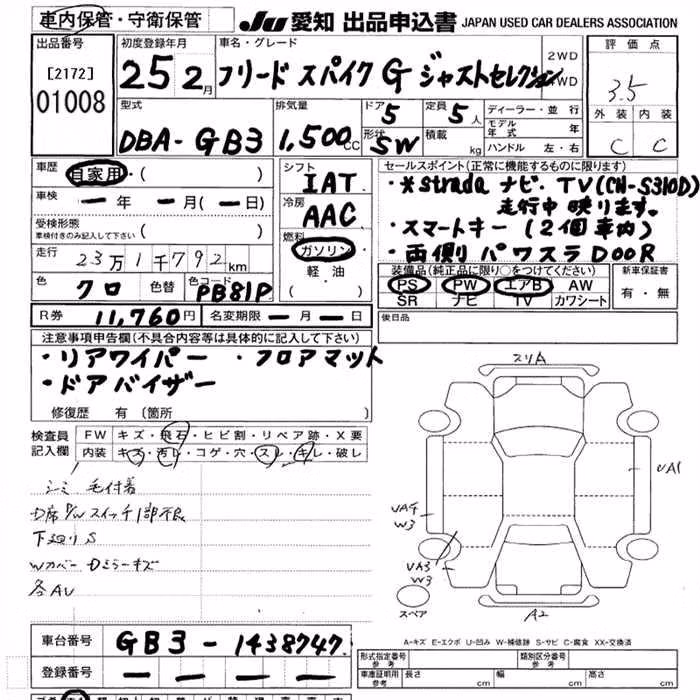 車内保管・守衛保管 JU 愛知 出品申込書 JAPAN USED CAR DEALERS ASSOCIATION
出品番号
[2172]
01008
初度登録年月
25 2月
車名・グレード
フリード スパイク G ジャストセレクション
2WD
4WD
評価点
3.5
外装 内装
C C
型式
DBA-GB3
排気量
1,500cc
ドア
5
形状
SW
定員
5人
積載
kg
ディーラー・並行
モデル年式 年
ハンドル 左・右
車歴
自家用・( )
車検 ー年 ー月(ー日)
受検形態
車検付きのみ記入して下さい ( )
走行
23万1千792km
色
クロ
色替
色コード
PB81P
シフト
IAT
冷房
AAC
燃料
ガソリン
軽油
( )
セールスポイント(正常に機能するものに限ります)
・*strada ナビ・TV(CN-S310D)
走行中映ります。
・スマートキー(2個車内)
・両側パワスラDOOR
装備品(純正品に限り○をつけてください)
PS PW エアB AW
SR ナビ TV カワシート
新車保証書
有・無
R券 11,760円 名変期限 ー月ー日
後日品
注意事項申告欄(不具合内容等は具体的に記入して下さい)
・リアワイパー ・フロアマット
・ドアバイザー
修復歴 有(箇所 )
検査員記入欄
FW キズ・飛石・ヒビ割・リペア跡・X要
内装 キズ・汚れ・コゲ・穴・スレ・キレ・破レ
シミ 毛付着
D席P/Wスイッチ1部不良
下廻りS
Wカバー Dミラーキズ
各AU
スリA
UA1
UA4
W3
UA3
W3
スペア
A2
A-キズ E-エクボ U-凹み W-補修跡 S-サビ C-腐食 XX-交換済
車台番号 GB3-1438747.
登録番号 ー ー ー ー
形式指定番号
参考
類別区分番号
参考
車庫証明用
参考
長さ cm 幅 cm 高さ cm